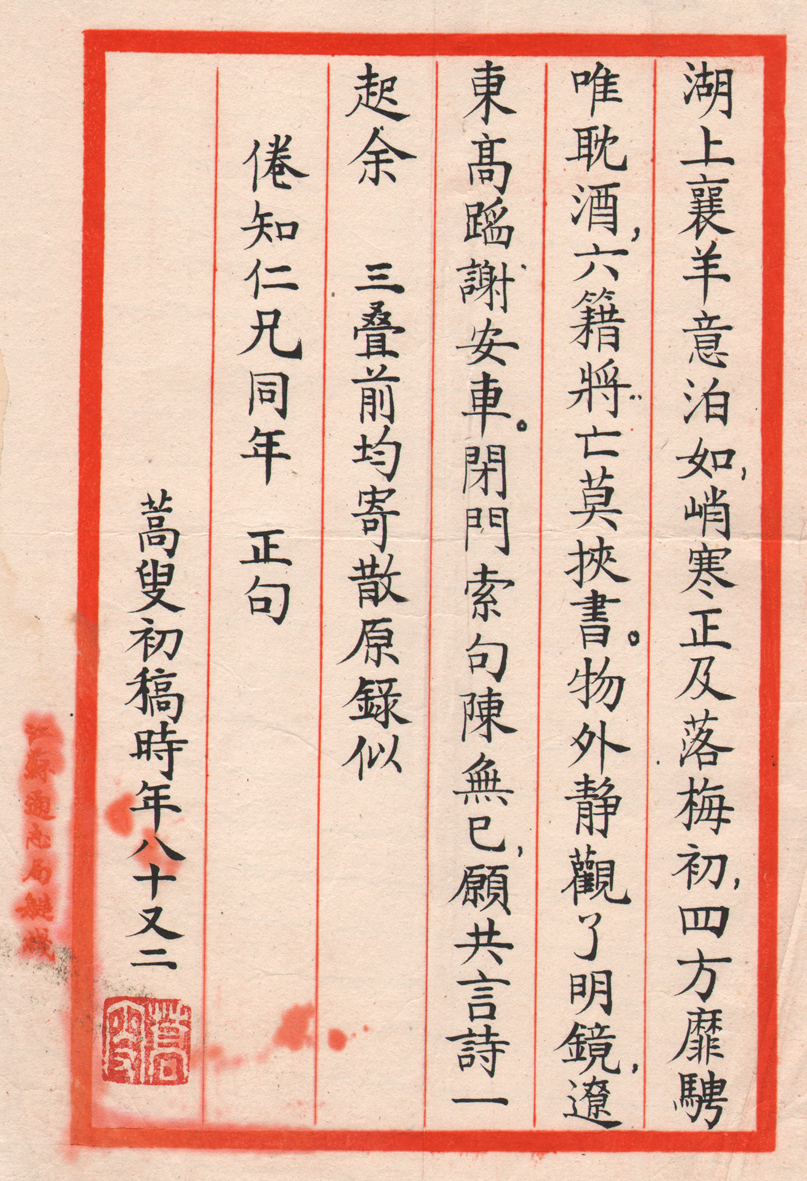 湖上襄羊意泊如，峭寒正及落梅初，四方靡騁
唯耽酒，六籍將亡莫挾書。物外静觀了明鏡，遼
東高蹈謝安車。閉門索句陳無已，願共言詩一
起余　三疊前均寄散原錄似
倦知仁兄同年　正句
蒿叟初稿時年八十又二
蒿叟
江蘇通志局製牋